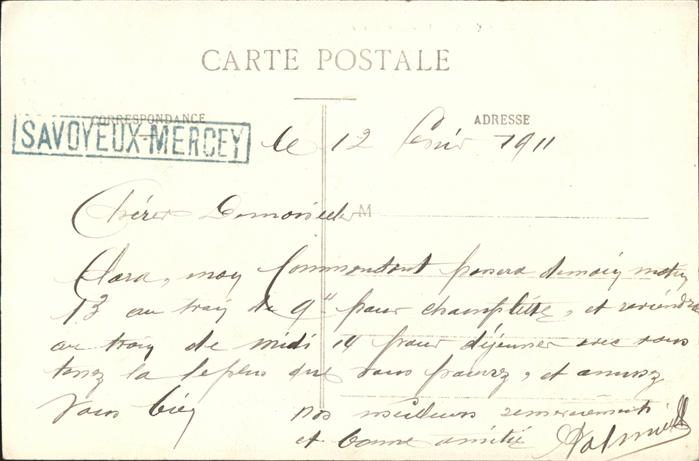 CARTE POSTALE
CORRESPONDANCE
ADRESSE
SAVOYEUX-MERCEY
le 12 1911
Chères Demoiselles
M
Clara, mon Commandant passera demain matin
13 au train de 9h pour champlitte, et reviendra
au train de midi 14 pour déjeuner avec vous
tenez la le plus que vous pourrez, et amusez
Vous bien
Nos meilleurs remerciements
et bonne amitié